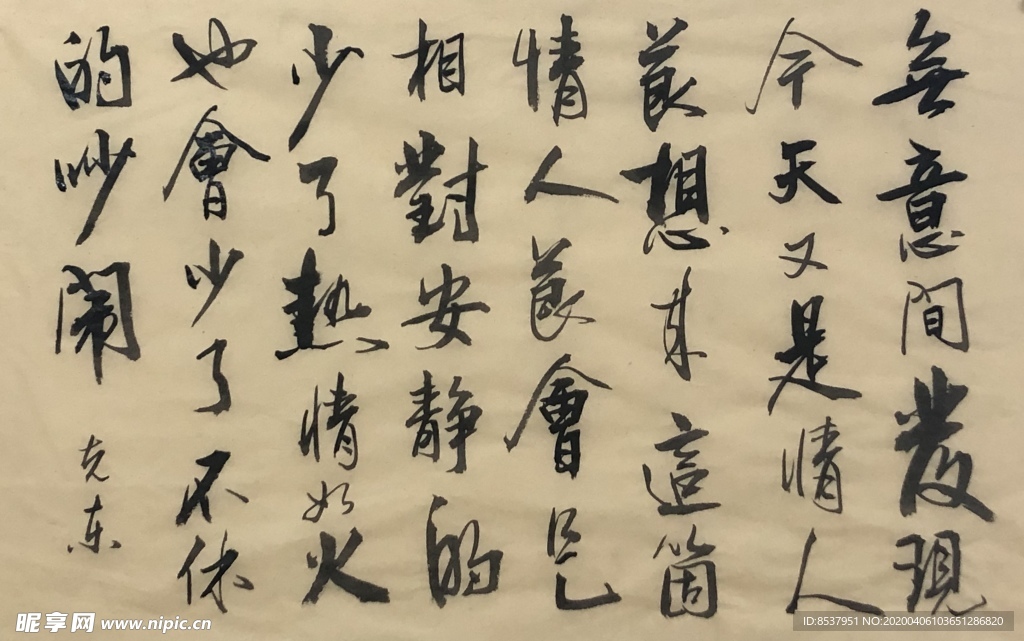 無意間發現
今天又是情人
莭想来這箇
情人莭會是
相對安静的
少了熱情如火
也會少了不休
的吵鬧
克东
昵享网 www.nipic.cn
ID:8537951 NO:20200406103651286820